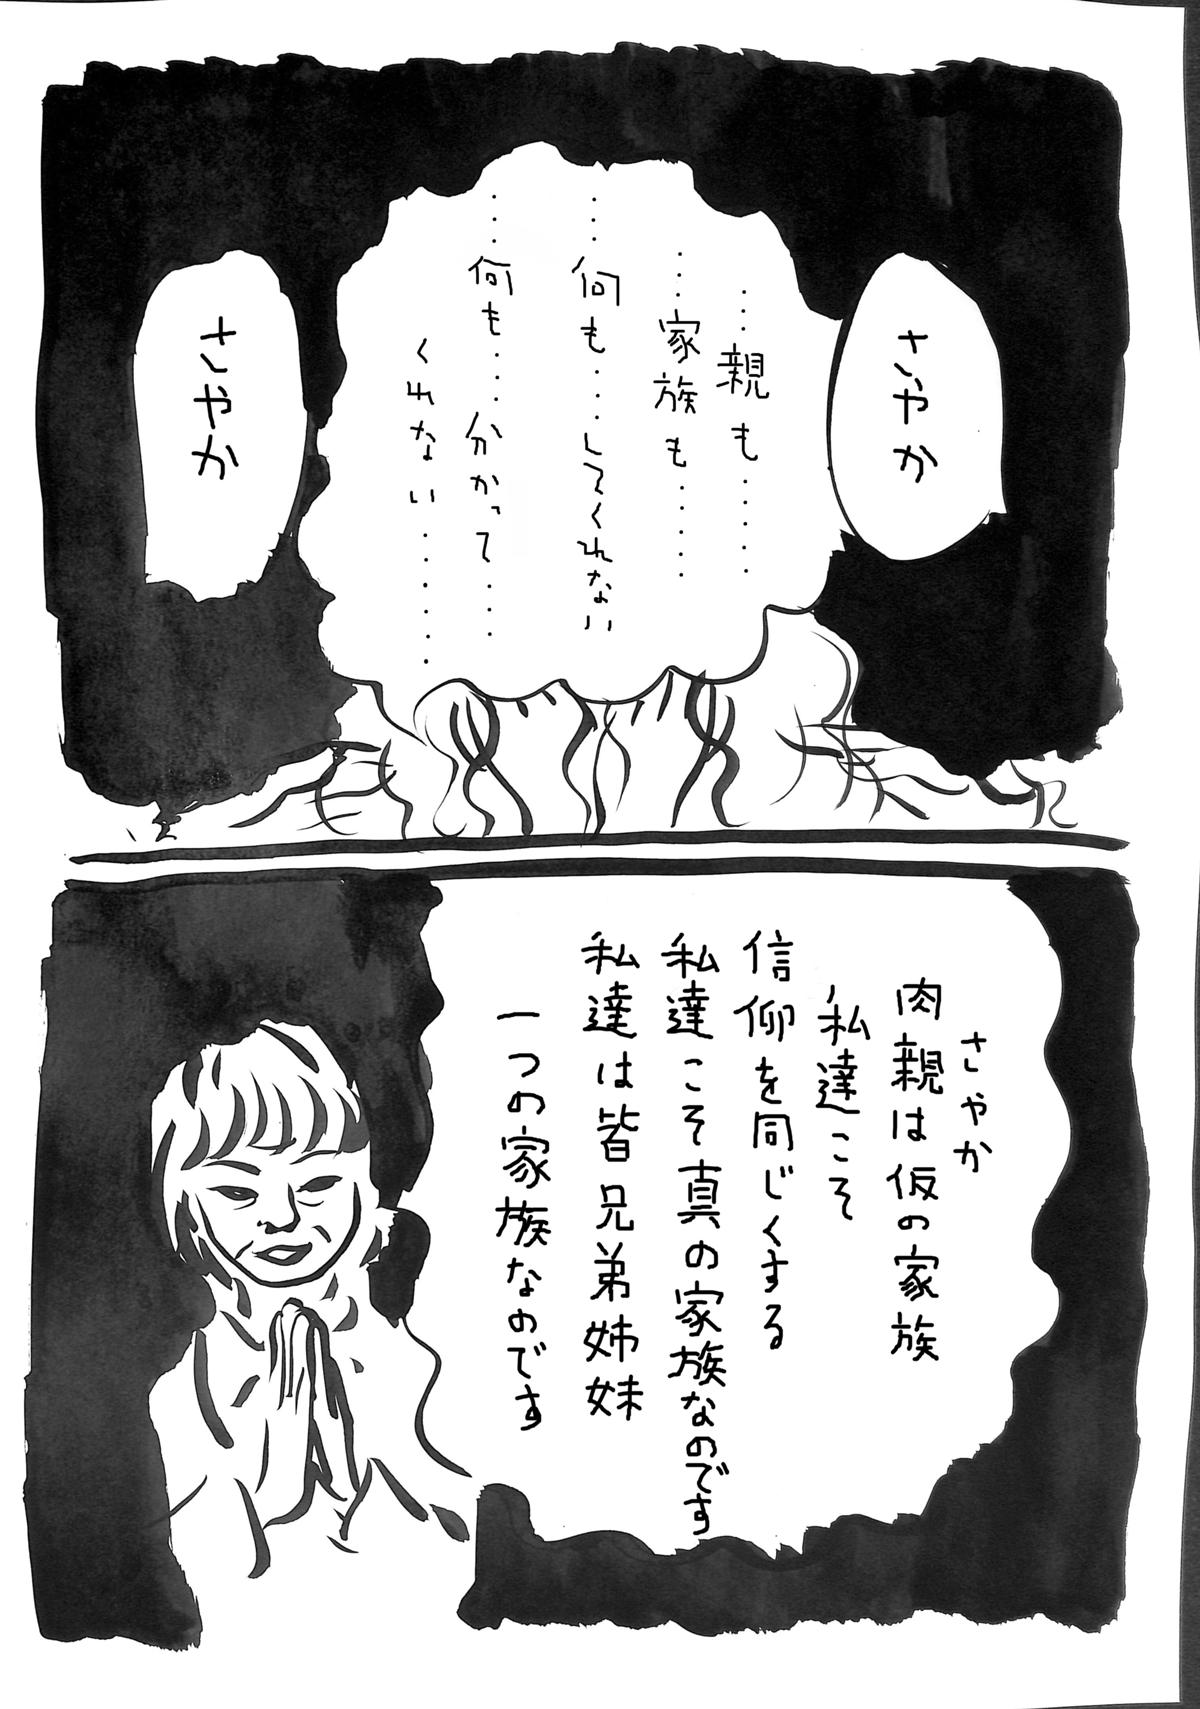 さやか
……親も……
……家族も……
……何も……してくれない
……何も……分かって……
くれない………
さやか
さやか
肉親は仮の家族
私達こそ
信仰を同じくする
私達こそ真の家族なのです
私達は皆兄弟姉妹
一つの家族なのです